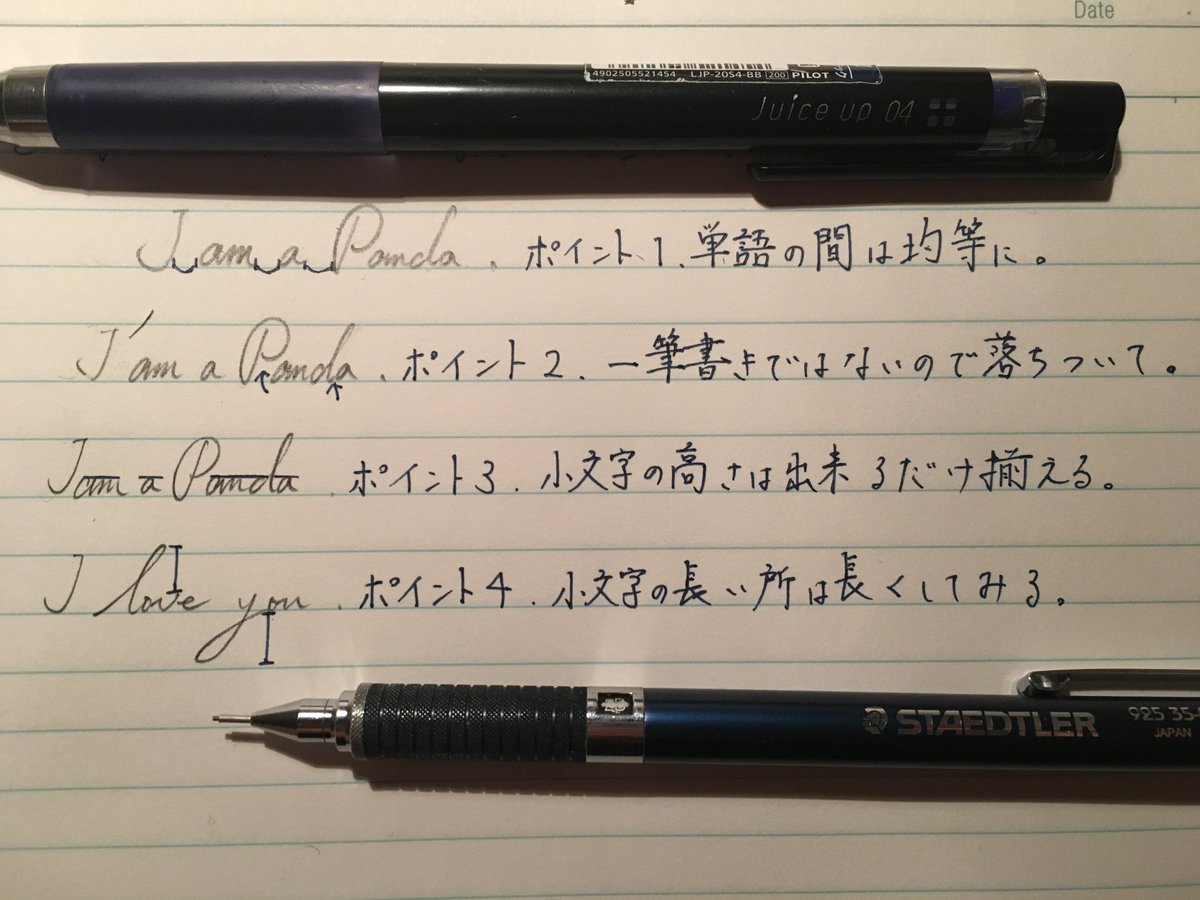 Date
4902505521454 LJP-20S4-BB 200 PILOT
Juice up 04
I am a Panda. ポイント1.単語の間は均等に。
I'am a Panda. ポイント2.一筆書きではないので落ちついて。
I am a Panda. ポイント3.小文字の高さは出来るだけ揃える。
I love you. ポイント4.小文字の長い所は長くしてみる。
STAEDTLER 925 35
JAPAN